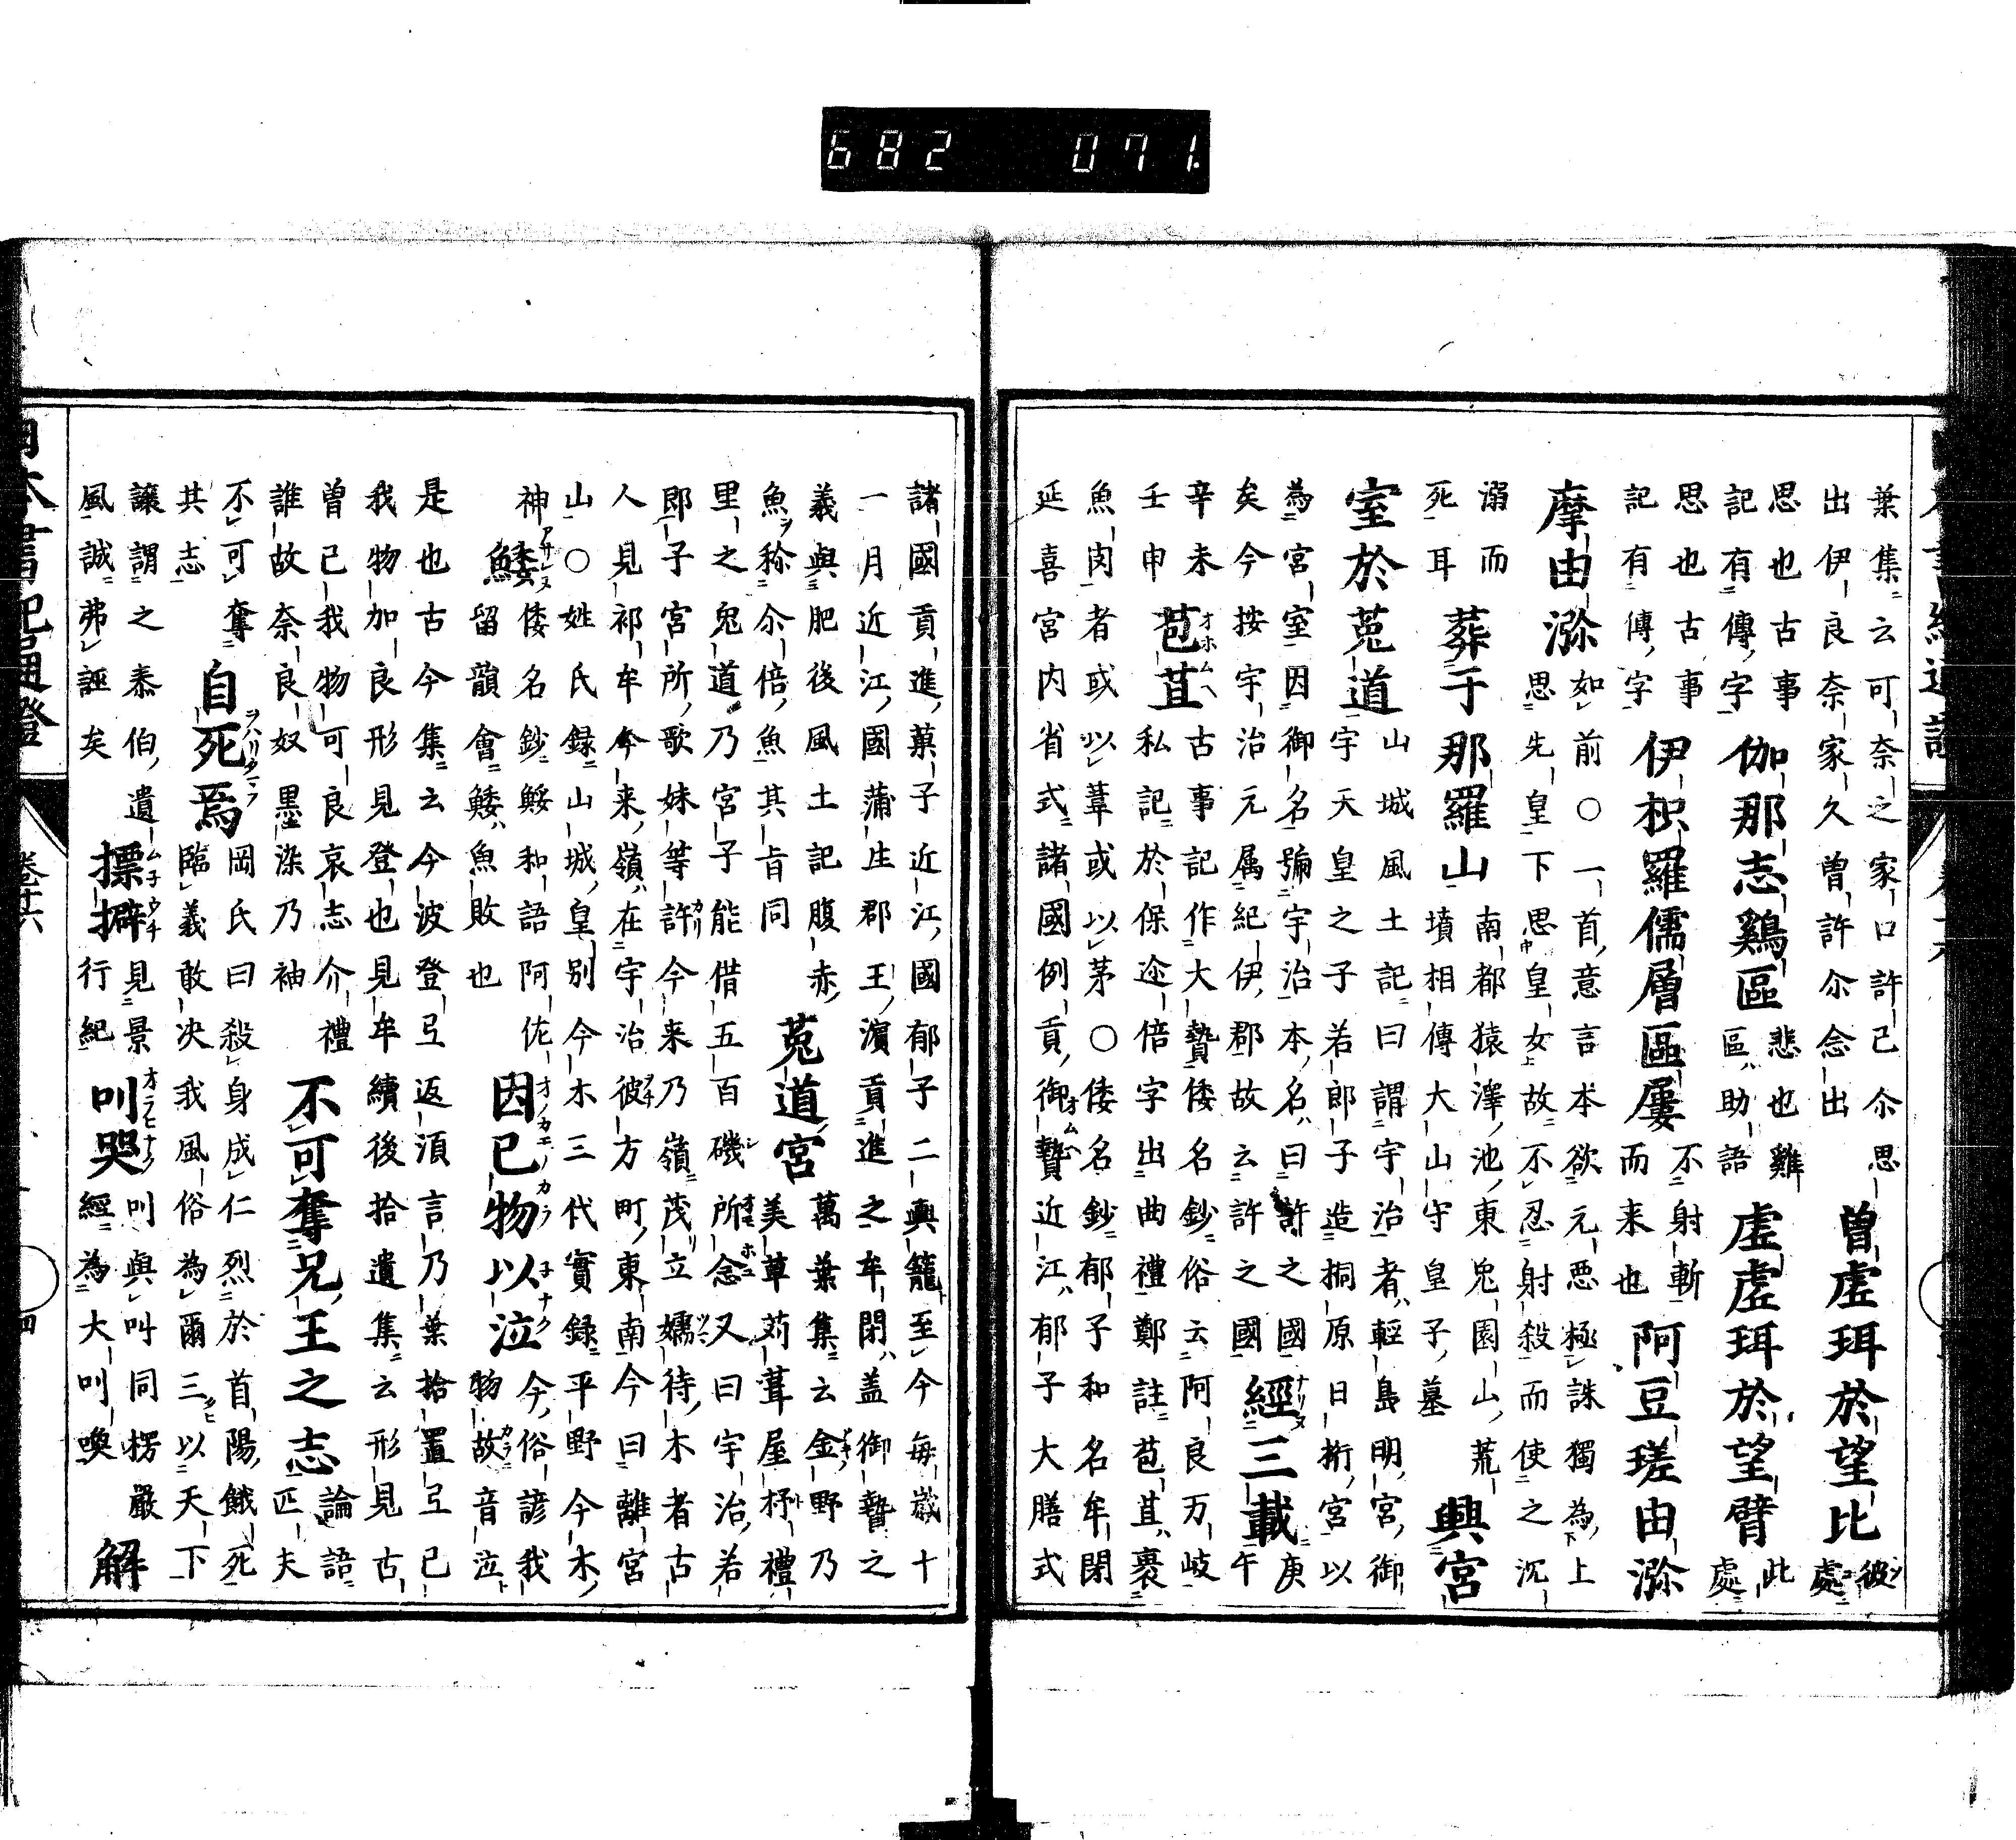 葉集云可奈之家口許己尒思
出伊良奈家久曽許尒念出
曽虛珥於望比
彼
處
思也古事
記有傳字
伽那志鷄區
悲也雞
區助語
虛虛珥於望臂
此
處
思也古事
記有傳字
伊枳羅儒層區屢
不射斬
而来也
阿豆瑳由瀰
摩由瀰
如前○一首意言本欲元悪極誅獨為上
思先皇下思皇女故不忍射殺而使之沉
溺而
死耳
葬于那羅山
南都猿澤池東兎園山荒
墳相傳大山守皇子墓
興宮
室於菟道
山城風土記曰謂宇治者輕島明宮御
宇天皇之子若郎子造桐原日桁宮以
為宮室因御名號宇治本名曰許之國
矣今按宇治元属紀伊郡故云許之國
經三載
庚
午
辛未
壬申
苞苴
古事記作大贄倭名鈔俗云阿良万岐
私記於保迩倍字出曲禮鄭註苞苴褁
魚肉者或以葦或以茅○倭名鈔郁子和名牟閉
延喜宮内省式諸國例貢御贄近江郁子大膳式
諸國貢進菓子近江國郁子二輿籠至今毎歳十
一月近江國蒲生郡王濵貢進之牟閉盖御贄之
義與肥後風土記腹赤
魚稱尒倍魚其㫖同
菟道宮
萬葉集云金野乃
美草苅葺屋杼禮
里之兎道乃宮子能借五百磯所念又曰宇治若
郎子宮所歌妹等許今来乃嶺茂立嬬待木者古
人見祁牟今来嶺在宇治彼方町東南今曰離宮
山○姓氏録山城皇別今木三代實録平野今木
神
鯘
倭名鈔鮾和語阿佐
留韻會鯘魚敗也
因己物以泣
今俗諺我
物故音泣
是也古今集云今波登弖返湏言乃葉拾置弖己
我物加良形見登也見牟續後拾遺集云形見古
曽己我物可良哀志介禮
誰故奈良奴墨染乃袖
不可奪兄王之志
論語
匹夫
不可奪
其志
自死焉
岡氏曰殺身成仁烈於首陽餓死
臨義敢决我風俗為爾三以天下
讓謂之泰伯遺
風誠弗誣矣
摽擗
見景
行紀
叫哭
叫與叫同楞嚴
經為大叫喚
解
日本書紀通證
卷十六